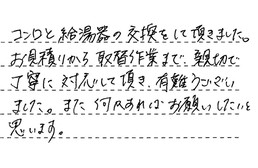 コンロと給湯器の交換をして頂きました。
お見積りから取替作業まで、親切で
丁寧に対応して頂き、有難うござい
ました。また何かあればお願いしたいと
思います。